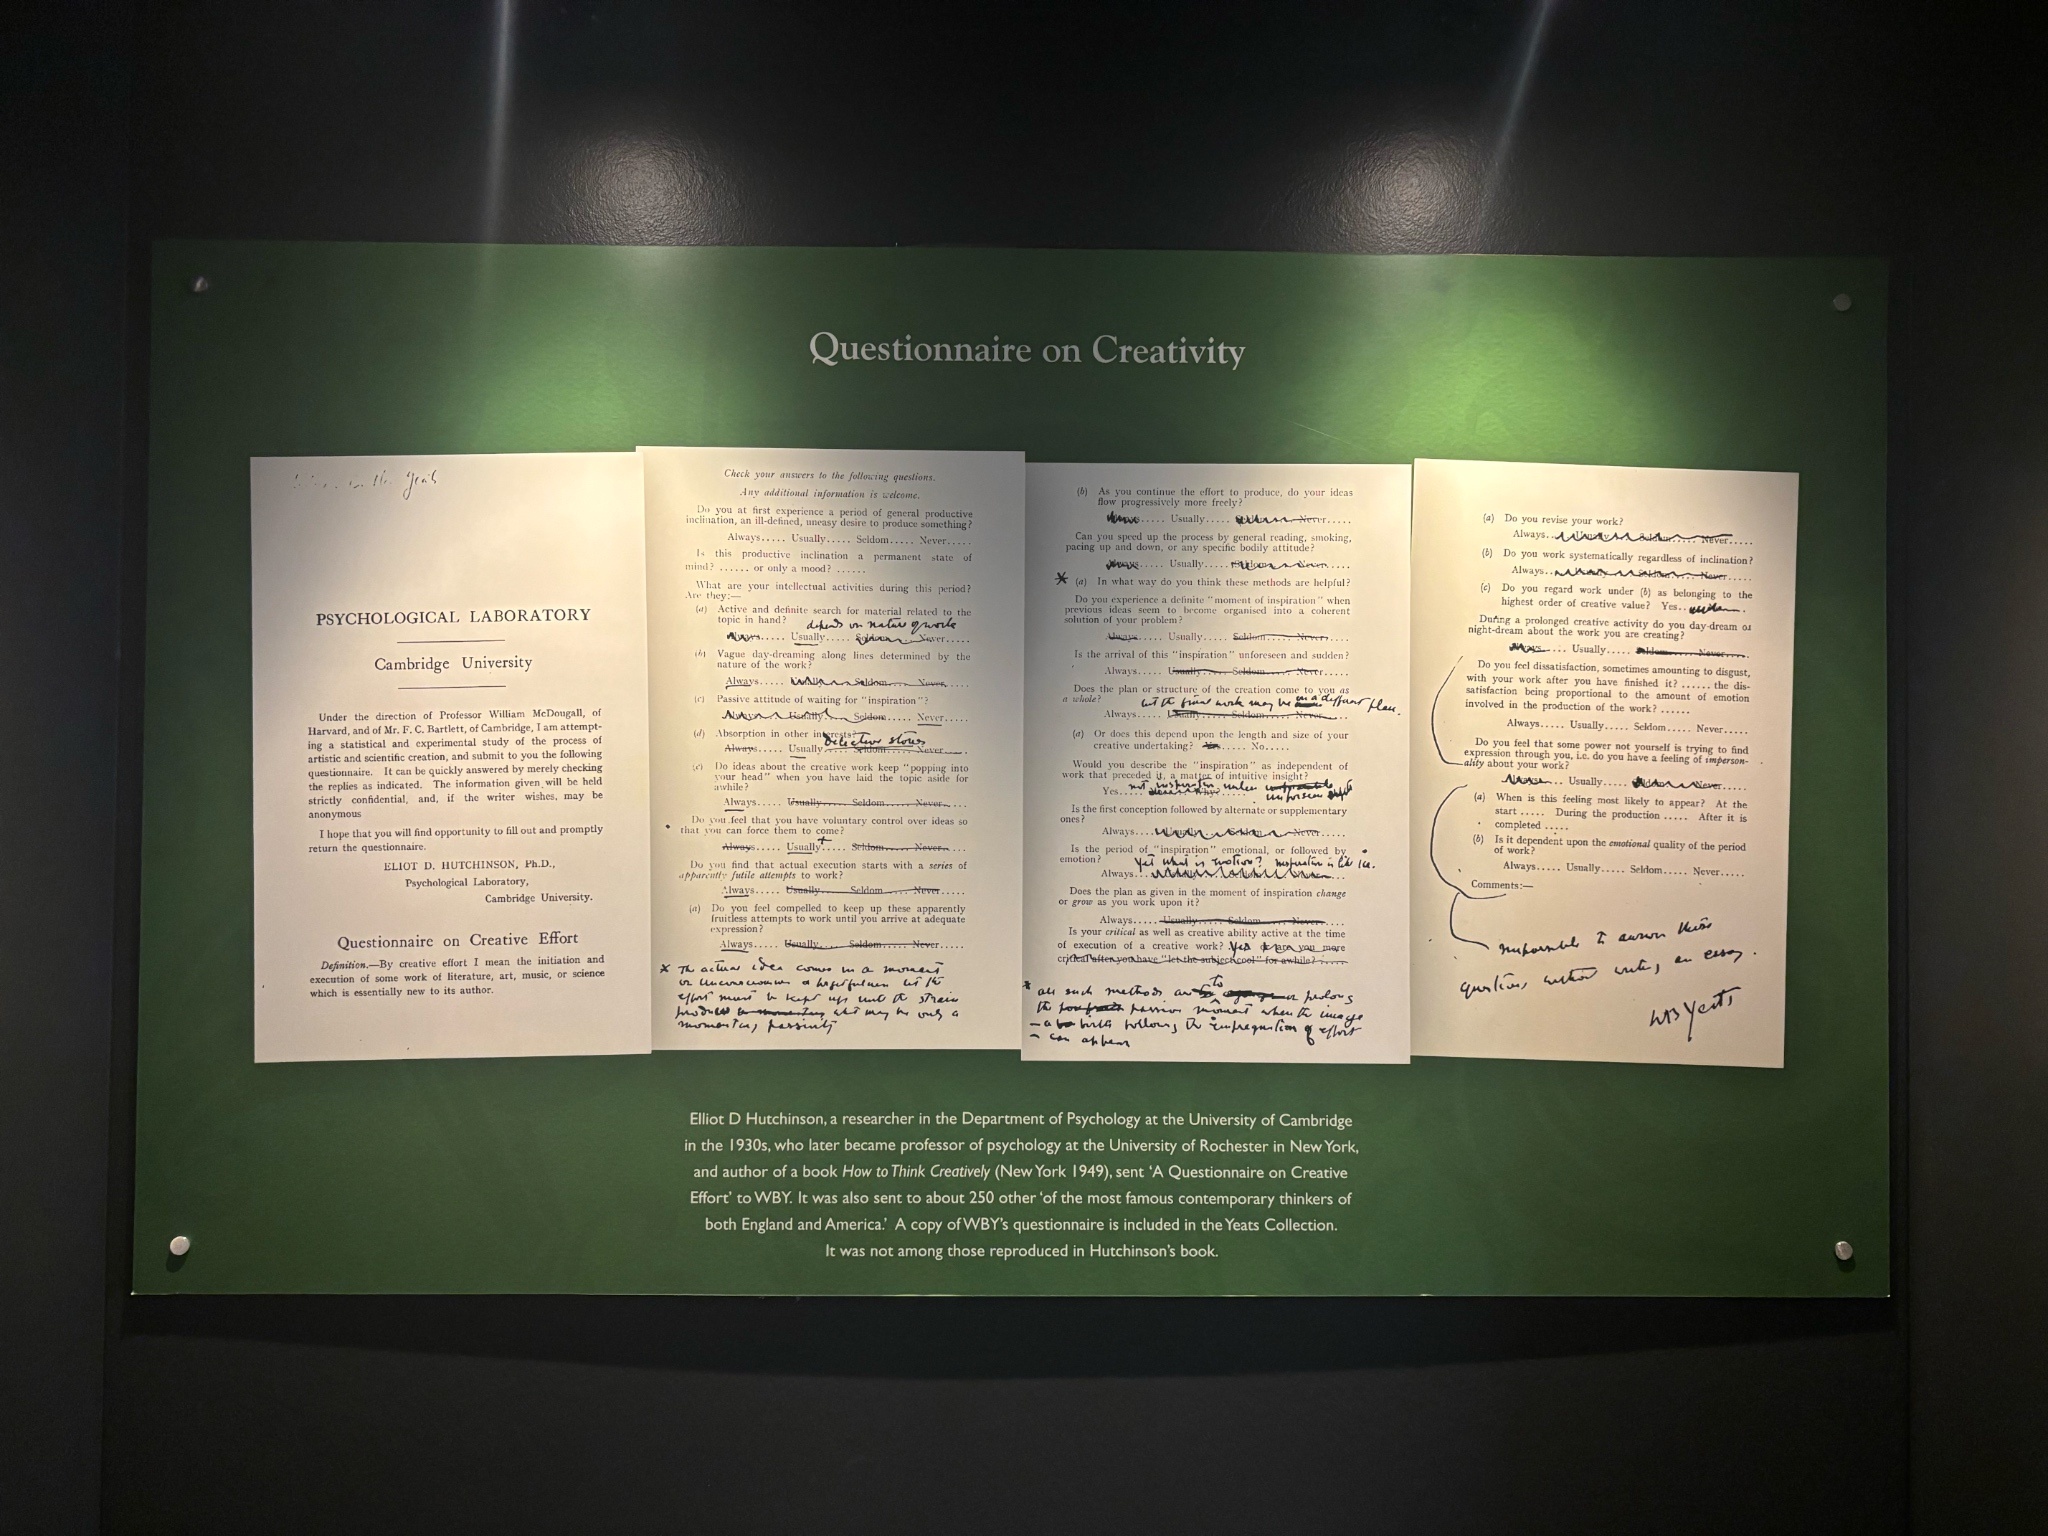 Questionnaire on Creativity
Yeats
PSYCHOLOGICAL LABORATORY
Cambridge University
Under the direction of Professor William McDougall, of
Harvard, and of Mr. F. C. Bartlett, of Cambridge, I am attempt-
ing a statistical and experimental study of the process of
artistic and scientific creation, and submit to you the following
questionnaire. It can be quickly answered by merely checking
the replies as indicated. The information given will be held
strictly confidential, and, if the writer wishes, may be
anonymous
I hope that you will find opportunity to fill out and promptly
return the questionnaire.
ELIOT D. HUTCHINSON, Ph.D.,
Psychological Laboratory,
Cambridge University.
Questionnaire on Creative Effort
Definition.—By creative effort I mean the initiation and
execution of some work of literature, art, music, or science
which is essentially new to its author.
Check your answers to the following questions.
Any additional information is welcome.
Do you at first experience a period of general productive
inclination, an ill-defined, uneasy desire to produce something?
Always..... Usually..... Seldom..... Never.....
Is this productive inclination a permanent state of
mind? ...... or only a mood? ......
What are your intellectual activities during this period?
Are they:—
(a) Active and definite search for material related to the
topic in hand? depends on nature of work
Always..... Usually..... Seldom..... Never.....
(b) Vague day-dreaming along lines determined by the
nature of the work?
Always..... Usually..... Seldom..... Never.....
(c) Passive attitude of waiting for "inspiration"?
Always..... Usually..... Seldom..... Never.....
(d) Absorption in other interests? Detective stories
Always..... Usually..... Seldom..... Never.....
(e) Do ideas about the creative work keep "popping into
your head" when you have laid the topic aside for
awhile?
Always..... Usually..... Seldom..... Never.....
Do you feel that you have voluntary control over ideas so
that you can force them to come?
Always..... Usually..... Seldom..... Never.....
Do you find that actual execution starts with a series of
apparently futile attempts to work?
Always..... Usually..... Seldom..... Never.....
(a) Do you feel compelled to keep up these apparently
fruitless attempts to work until you arrive at adequate
expression?
Always..... Usually..... Seldom..... Never.....
The actual idea comes in a moment
or unconsciousness a but the
effort must be kept up until the strain
produces but may be only a
momentary passivity
(b) As you continue the effort to produce, do your ideas
flow progressively more freely?
Always..... Usually..... Seldom..... Never.....
Can you speed up the process by general reading, smoking,
pacing up and down, or any specific bodily attitude?
Always..... Usually..... Seldom..... Never.....
(a) In what way do you think these methods are helpful?
Do you experience a definite "moment of inspiration" when
previous ideas seem to become organised into a coherent
solution of your problem?
Always..... Usually..... Seldom..... Never.....
Is the arrival of this "inspiration" unforeseen and sudden?
Always..... Usually..... Seldom..... Never.....
Does the plan or structure of the creation come to you as
a whole? but the final work may be on a different plan.
Always..... Usually..... Seldom..... Never.....
(a) Or does this depend upon the length and size of your
creative undertaking? Yes..... No.....
Would you describe the "inspiration" as independent of
work that preceded it, a matter of intuitive insight?
Yes..... not inspiration unless
Is the first conception followed by alternate or supplementary
ones?
Always..... Usually..... Seldom..... Never.....
Is the period of "inspiration" emotional, or followed by
emotion? Yet what is emotion? inspiration is like ice.
Always.....
Does the plan as given in the moment of inspiration change
or grow as you work upon it?
Always..... Usually..... Seldom..... Never.....
Is your critical as well as creative ability active at the time
of execution of a creative work? Yes or are you more
critical after you have "let the subject cool" for awhile? .....
all such methods are to or prolong
the passive moment when the image
– a birth following the impregnation of effort
– can appear
(a) Do you revise your work?
Always..... Usually..... Seldom..... Never.....
(b) Do you work systematically regardless of inclination?
Always..... Usually..... Seldom..... Never.....
(c) Do you regard work under (b) as belonging to the
highest order of creative value? Yes..
During a prolonged creative activity do you day-dream or
night-dream about the work you are creating?
Always..... Usually..... Seldom..... Never.....
Do you feel dissatisfaction, sometimes amounting to disgust,
with your work after you have finished it? ...... the dis-
satisfaction being proportional to the amount of emotion
involved in the production of the work? ......
Always..... Usually..... Seldom..... Never.....
Do you feel that some power not yourself is trying to find
expression through you, i.e. do you have a feeling of imperson-
ality about your work?
Always..... Usually..... Seldom..... Never.....
(a) When is this feeling most likely to appear? At the
start ..... During the production ..... After it is
completed .....
(b) Is it dependent upon the emotional quality of the period
of work?
Always..... Usually..... Seldom..... Never.....
Comments:—
impossible to answer these
questions without writing an essay.
WB Yeats
Elliot D Hutchinson, a researcher in the Department of Psychology at the University of Cambridge
in the 1930s, who later became professor of psychology at the University of Rochester in New York,
and author of a book How to Think Creatively (New York 1949), sent ‘A Questionnaire on Creative
Effort’ to WBY. It was also sent to about 250 other ‘of the most famous contemporary thinkers of
both England and America.’ A copy of WBY’s questionnaire is included in the Yeats Collection.
It was not among those reproduced in Hutchinson’s book.